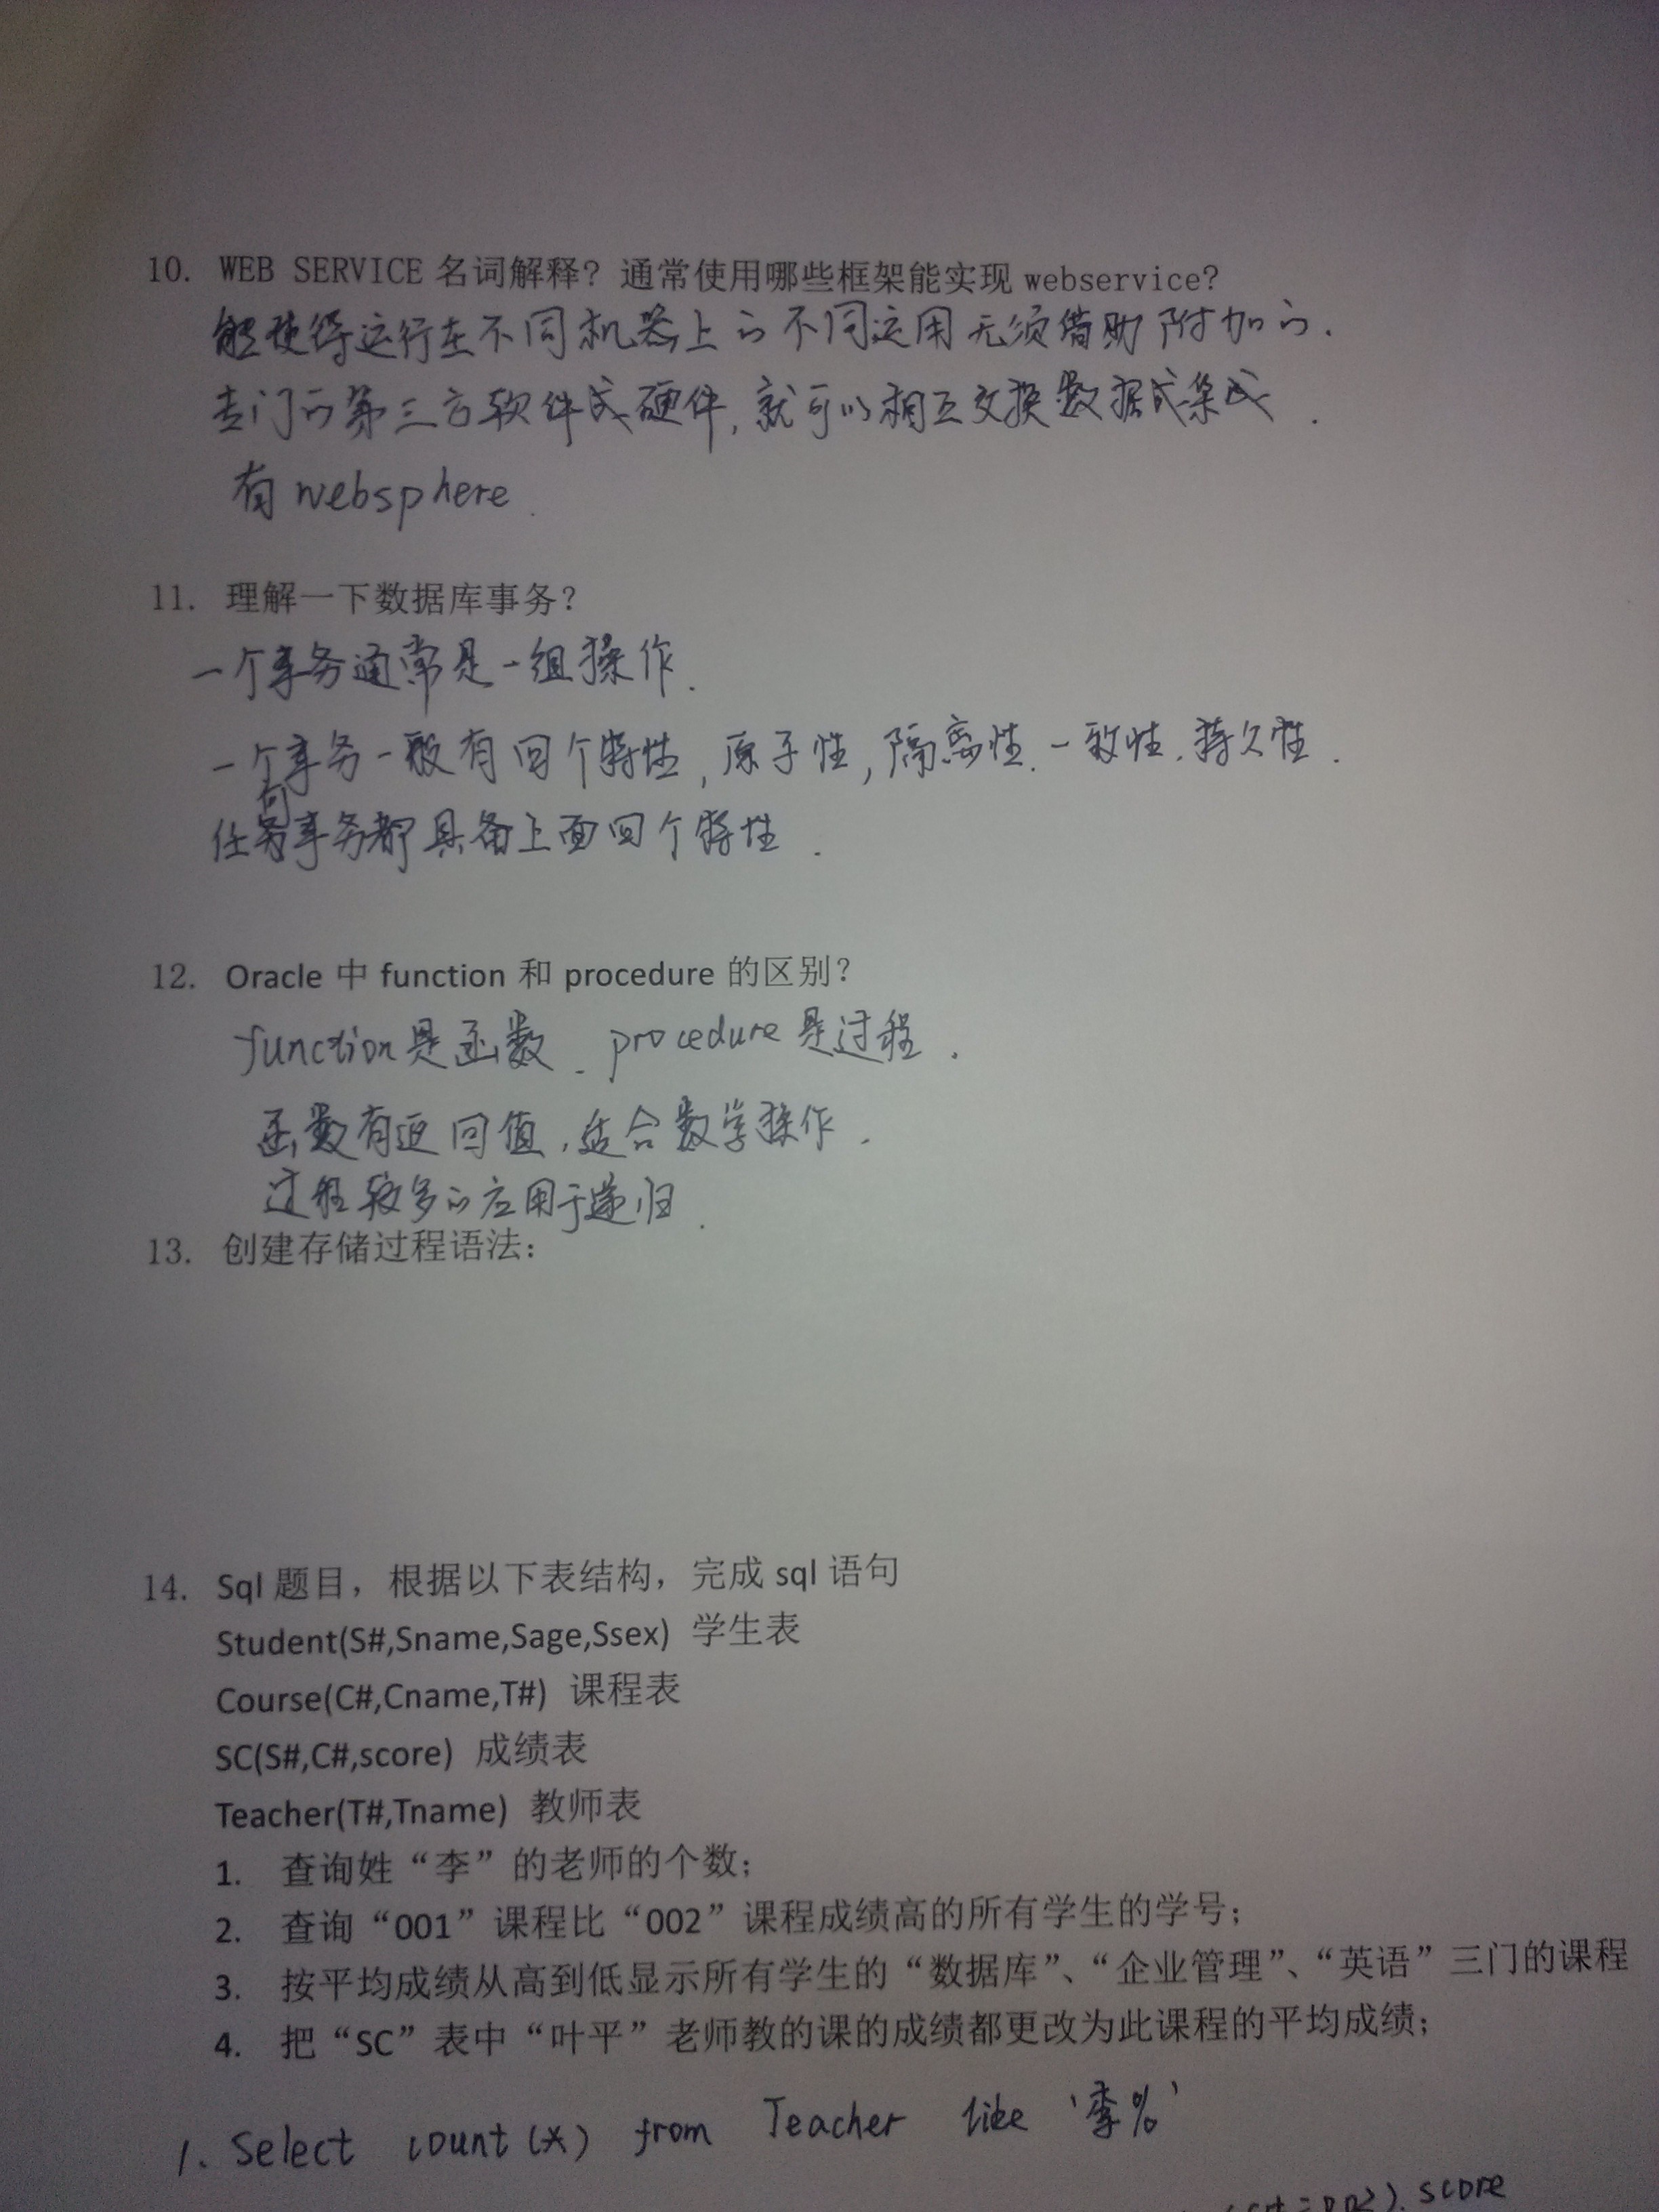 10. WEB SERVICE 名词解释？通常使用哪些框架能实现 webservice?
能使得运行在不同机器上的不同运用无须借助附加的.
专门的第三方软件或硬件, 就可以相互交换数据或集成.
有 websphere.
11. 理解一下数据库事务？
一个事务通常是一组操作.
一个事务一般有四个特性, 原子性, 隔离性. 一致性. 持久性.
何
任务事务都具备上面四个特性.
12. Oracle 中 function 和 procedure 的区别？
function是函数. procedure是过程.
函数有返回值, 适合数学操作.
过程较多的应用于递归.
13. 创建存储过程语法：
14. Sql 题目，根据以下表结构，完成 sql 语句
Student(S#,Sname,Sage,Ssex) 学生表
Course(C#,Cname,T#) 课程表
SC(S#,C#,score) 成绩表
Teacher(T#,Tname) 教师表
1. 查询姓“李”的老师的个数；
2. 查询“001”课程比“002”课程成绩高的所有学生的学号；
3. 按平均成绩从高到低显示所有学生的“数据库”、“企业管理”、“英语”三门的课程
4. 把“SC”表中“叶平”老师教的课的成绩都更改为此课程的平均成绩；
1. Select count(*) from Teacher like '李%'
score